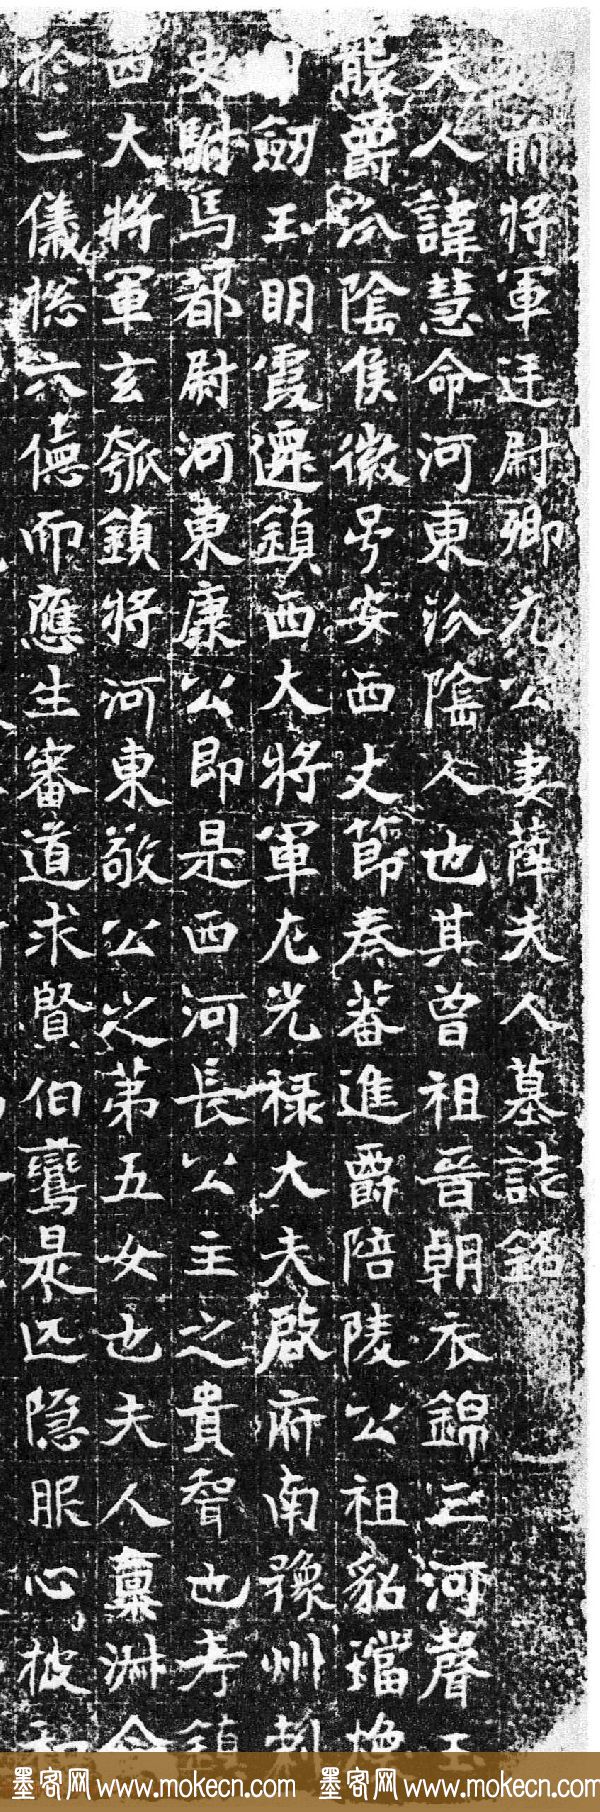 前將軍廷尉卿元公妻薛夫人墓誌銘
夫人諱慧命河東汾陰人也其曾祖晉朝衣錦三河聲玉
襲爵汾陰侯徽号安西丈節秦蕃進爵陪陵公祖貂璫
劒玉明霞遷鎮西大將軍左光禄大夫啟府南豫州刺
史駙馬都尉河東康公即是西河長公主之貴智也考鎮
西大將軍玄瓠鎮將河東敬公之第五女也夫人稟淋令
於二儀惣六德而應生審道求賢伯鸞是匹隐服心披和
墨客网 www.mokecn.com 墨客网 www.mokecn.com